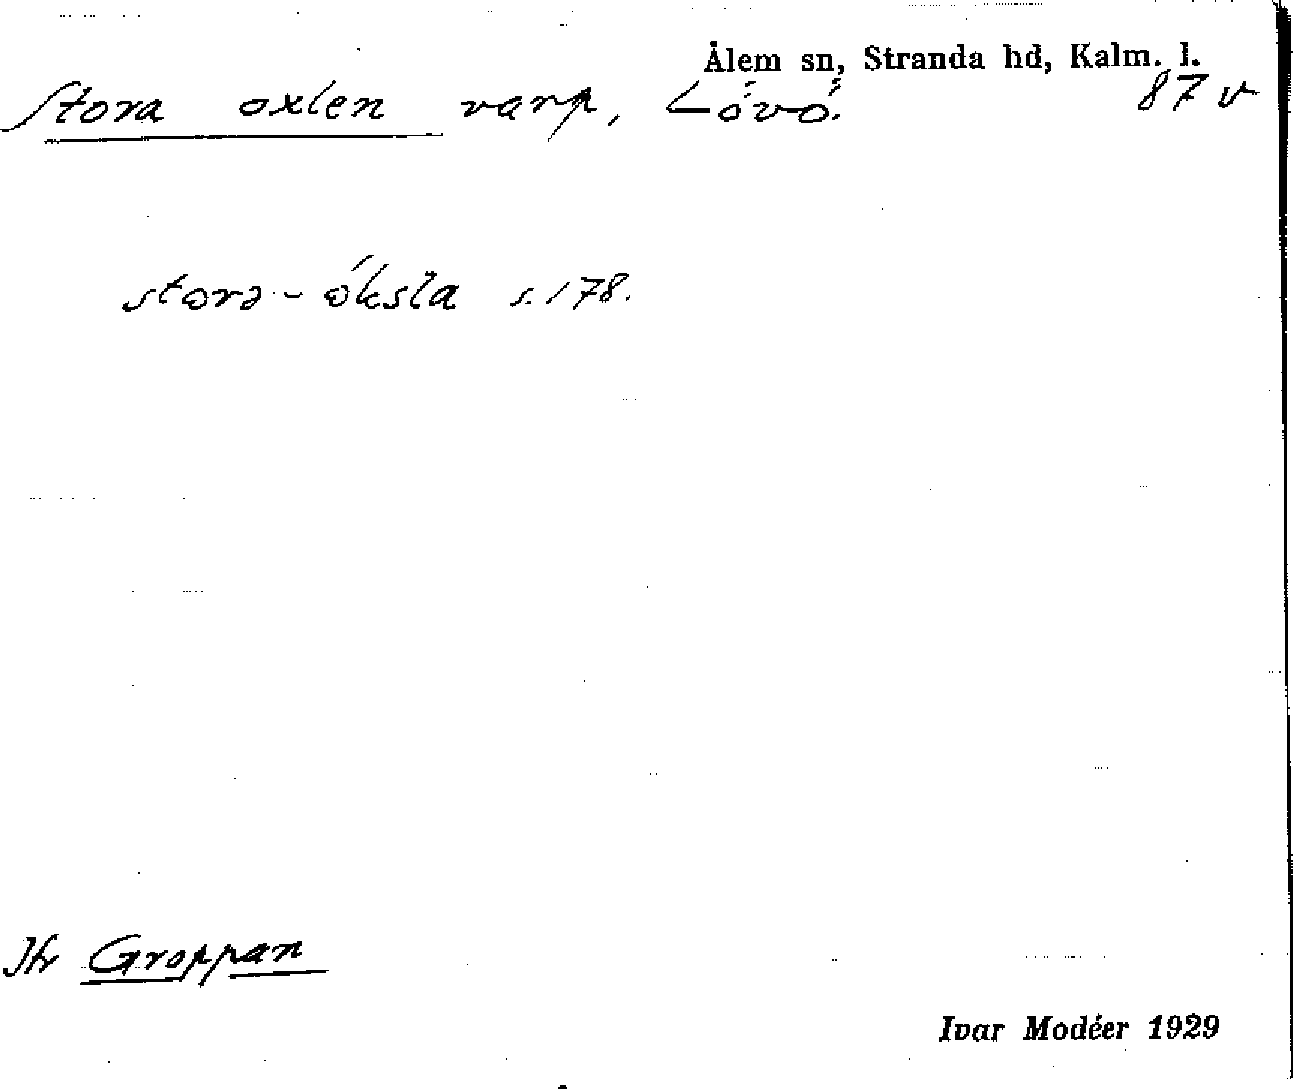 Ålem sn, Stranda hd, Kalm. l.
Stora oxlen varp, Lövö. 87 v
storə-óksla s. 178.
Jfr Groppan
Ivar Modéer 1929